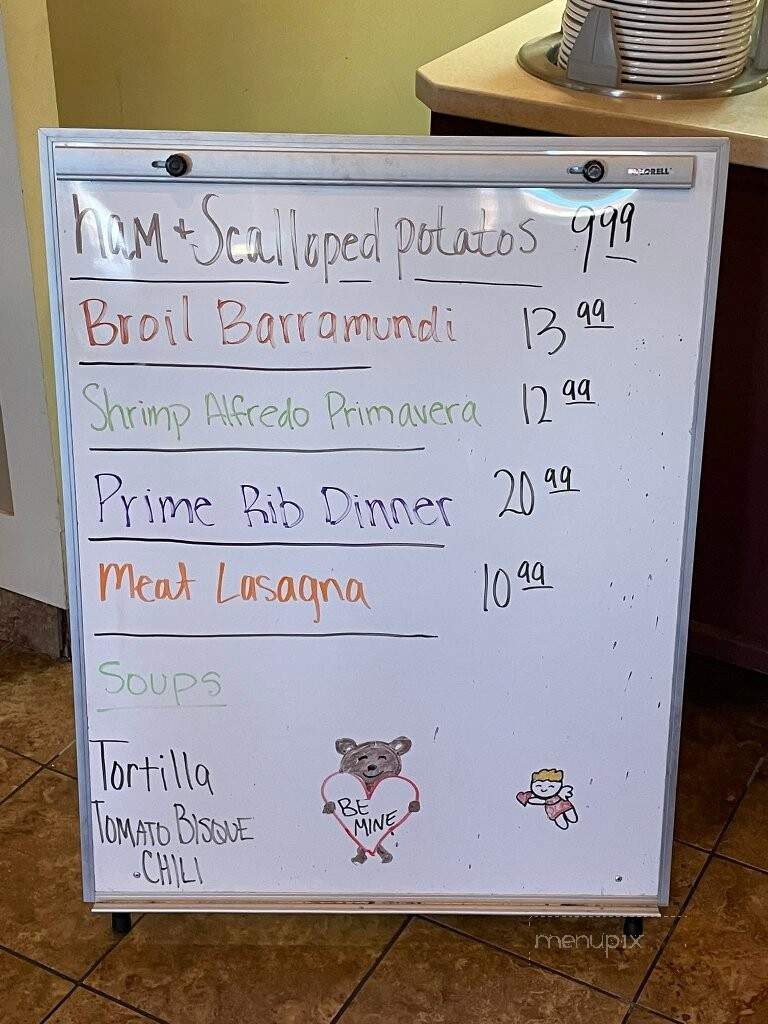 ham + Scalloped potatos 9.99
Broil Barramundi 13.99
Shrimp Alfredo Primavera 12.99
Prime Rib Dinner 20.99
Meat Lasagna 10.99
Soups
Tortilla
TOMATO BISQUE
CHILI
BE
MINE
menupix